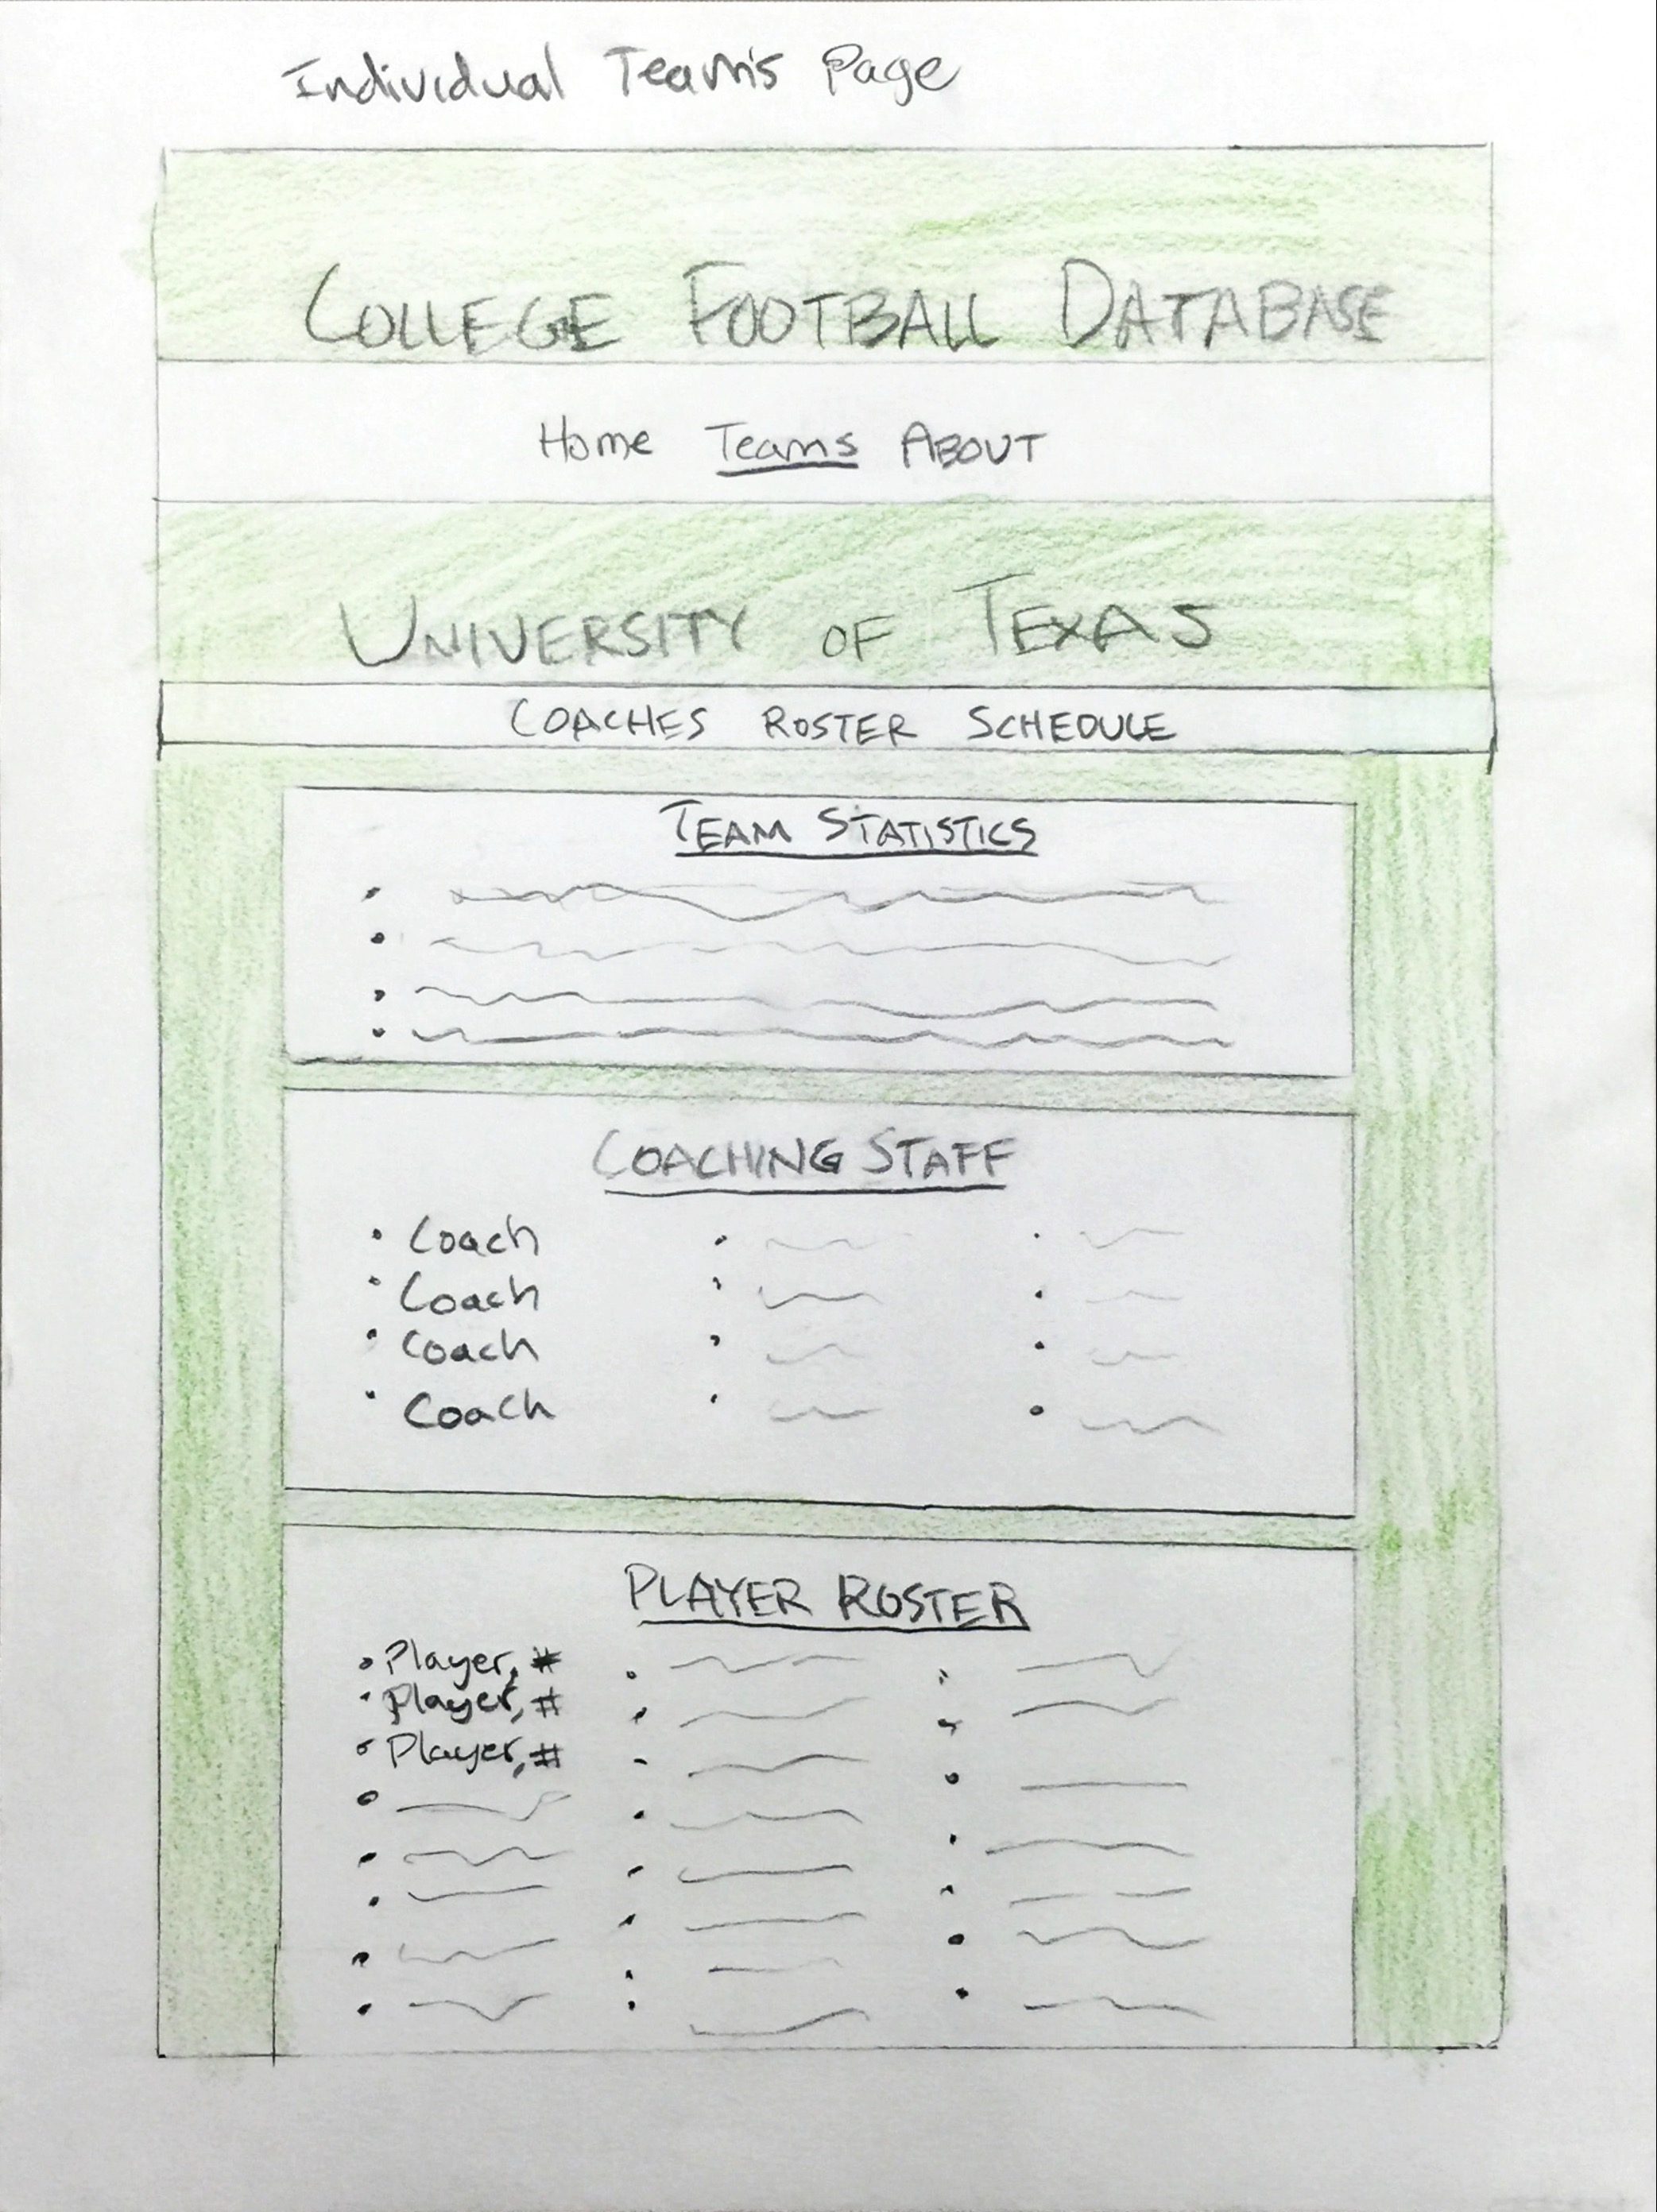 Individual Team's Page
COLLEGE FOOTBALL DATABASE
Home Teams ABOUT
UNIVERSITY OF TEXAS
COACHES ROSTER SCHEDULE
TEAM STATISTICS
COACHING STAFF
• Coach
• Coach
• Coach
• Coach
PLAYER ROSTER
• Player, #
• Player, #
• Player, #